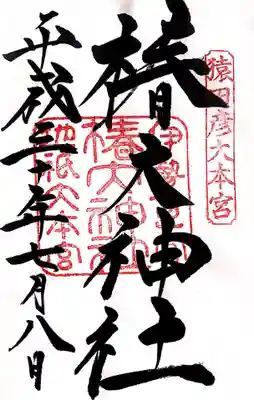 猿田彦大本宮
椿大神社
伊勢一宮
椿大神社
地祇大本宮
平成三十年七月八日